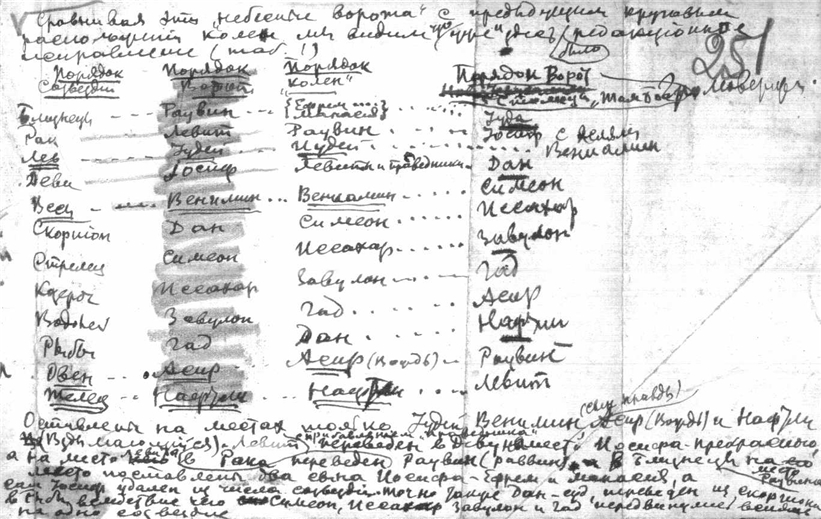 Сравнивая эти "небесные ворота" с предыдущим круговым
расположением колен мы видим, что "уже" здесь (редакционное
исправление (таб. 1) было
251
Порядок Порядок Порядок Порядок Ворот
Созвездий Ворот "колен"
Близнецы Раувин {Ефрем ... Иуда
{Манасея}
Рак Левит Раувин Иосиф с
Лев Иудей Иудей Вениамин
Дева Иосиф Левиты и праведники Дан
Весы Венимин Вениамин Симеон
Скорпион Дан Симеон Иссахар
Стрелец Симеон Иссахар Завулон
Козерог Иссахар Завулон Гад
Водолей Завулон Гад Асир
Рыбы Гад Дан Нафули
Овен Асир Асир (Коудь) Раувин
Телец Нафули Нафули Левит
Оставлены на местах только Иуда, Венимин, Асир (Коудь) и Нафули
Левит переведен в Деву на место Иосифа-прекрасного,
а на место в Рака переведен Раувин (раввин), а в Близнецы на его
место поставлены два сына Иосифа - Ефрем и Манасия, а
сам Иосиф удален из числа созвездий. Точно также Дан-суд переведен из скорпиона
в Рыбы, вследствие чего Симеон, Иссахар, Завулон и Гад передвинулись
на одно созвездие